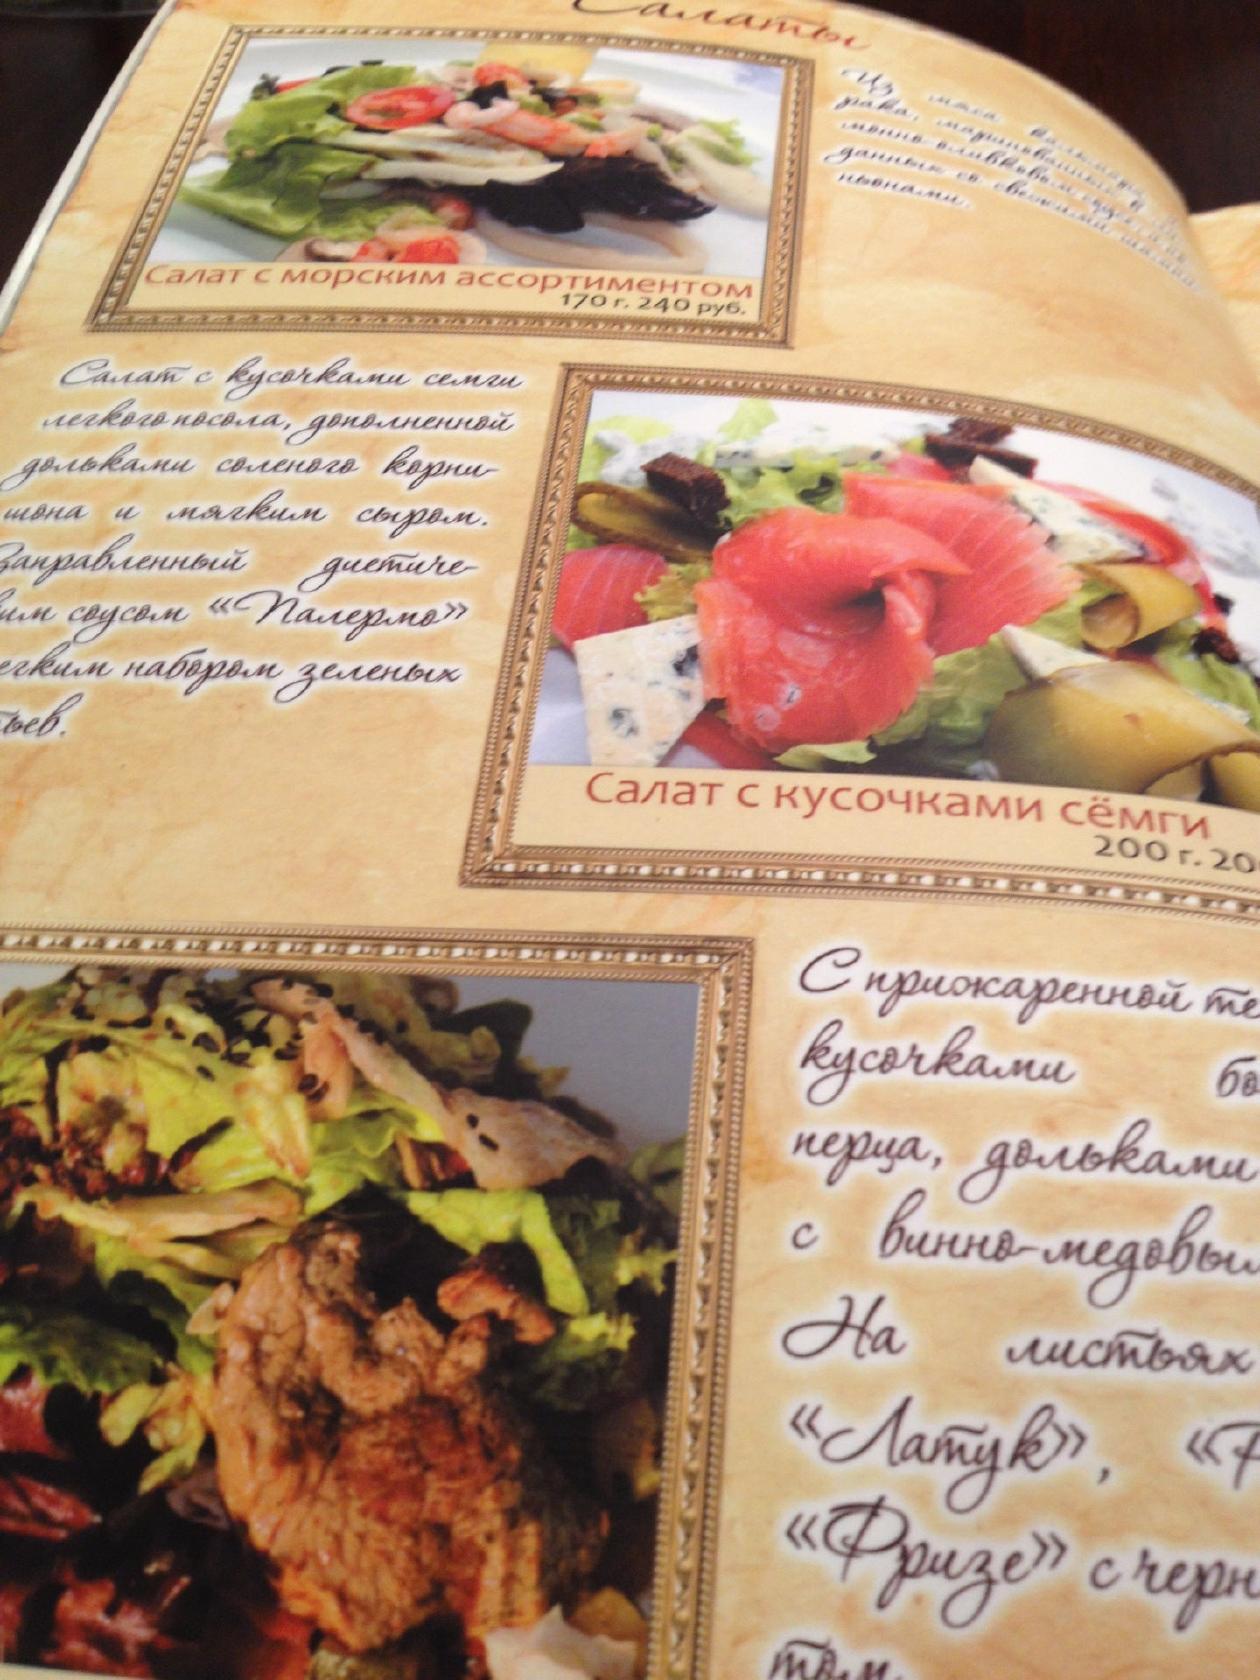 Салаты
Из мяса кальмара,
рака, маринованных в
монно-оливковом соусе
данных со свежими
ньонами.
Салат с морским ассортиментом
170 г. 240 руб.
Салат с кусочками семги
легкого посола, дополненной
дольками соленого корни-
шона и мягким сыром.
Заправленный диетиче-
ким соусом «Палермо»
егким набором зеленых
тьев.
Салат с кусочками сёмги
200 г. 20
С прижаренной те
кусочками бо
перца, дольками
с винно-медовым
На листьях
«Латук», «Р
«Фризе» с черн
том.